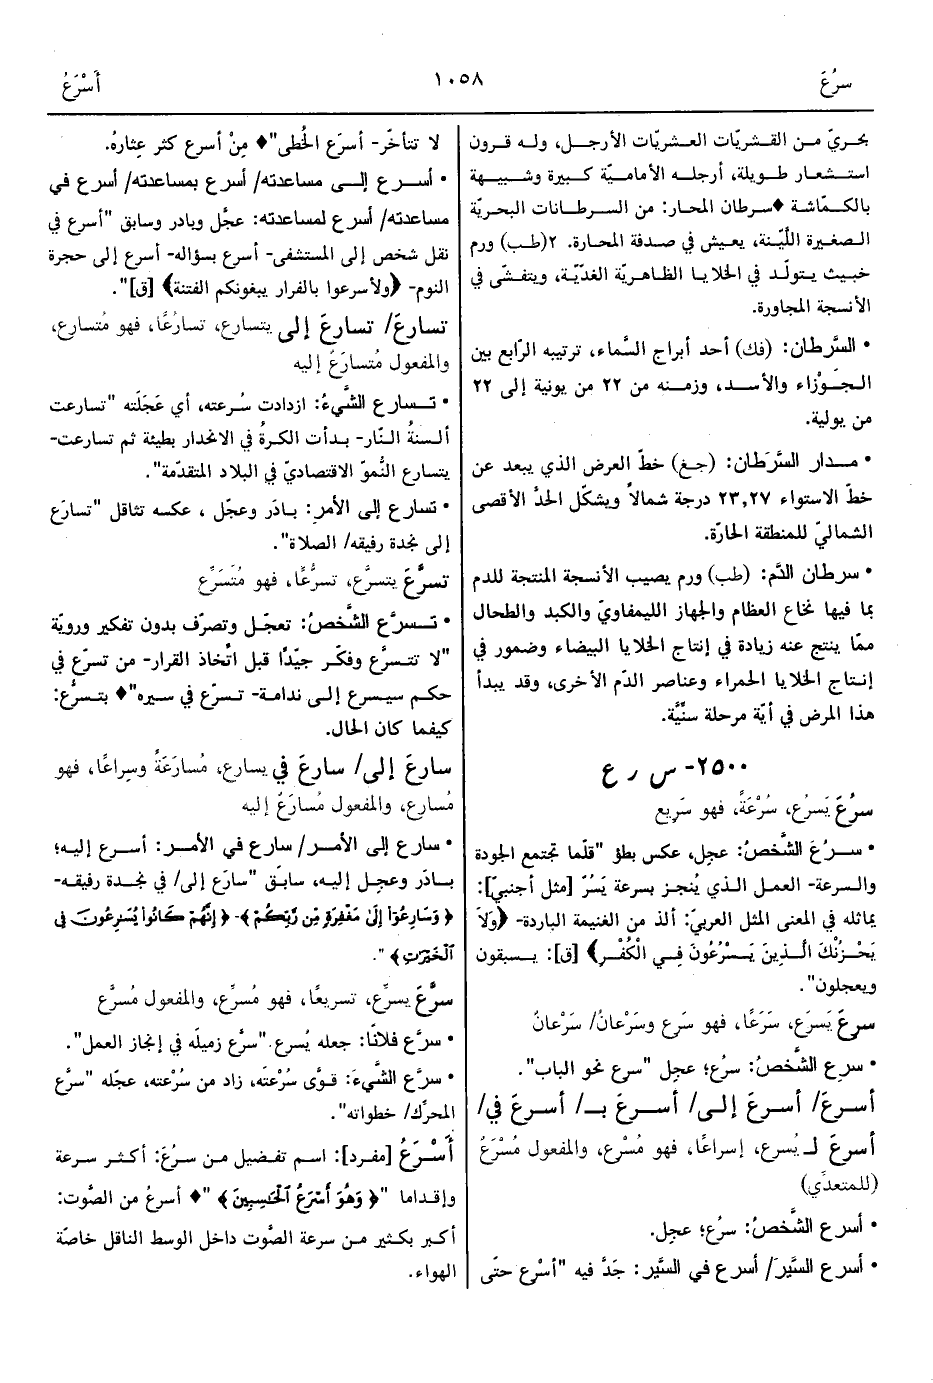 سرُعَ
١٠٥٨
أَسْرَعُ
بحريّ من القشريّات العشريّات الأرجل، وله قرون
استشعار طويلة، أرجله الأماميّة كبيرة وشبيهة
بالكمّاشة ♦ سرطان المحار: من السرطانات البحريّة
الصغيرة اللّيّنة، يعيش في صدفة المحارة. ٢(طب) ورم
خبيث يتولّد في الخلايا الظاهريّة الغدّيّة، ويتفشّى في
الأنسجة المجاورة.
• السَّرطان: (فك) أحد أبراج السَّماء، ترتيبه الرّابع بين
الجَوْزاء والأسد، وزمنه من ٢٢ من يونية إلى ٢٢
من يولية.
• مدار السَّرَطان: (جغ) خطّ العرض الذي يبعد عن
خطّ الاستواء ٢٣,٢٧ درجة شمالاً ويشكّل الحدَّ الأقصى
الشماليّ للمنطقة الحارّة.
• سرطان الدَّم: (طب) ورم يصيب الأنسجة المنتجة للدم
بما فيها نخاع العظام والجهاز الليمفاويّ والكبد والطحال
ممّا ينتج عنه زيادة في إنتاج الخلايا البيضاء وضمور في
إنتاج الخلايا الحمراء وعناصر الدّم الأخرى، وقد يبدأ
هذا المرض في أيّة مرحلة سنّيَّة.
٢٥٠٠- س ر ع
سرُعَ يَسرُع، سُرْعَةً، فهو سَريع
• سرُعَ الشَّخصُ: عجل، عكس بطؤ "قلّما تجتمع الجودة
والسرعة- العمل الذي يُنجز بسرعة يَسُرّ [مثل أجنبيّ]:
يماثله في المعنى المثل العربيّ: ألذ من الغنيمة الباردة- ﴿وَلاَ
يَحْزُنْكَ الَّذِينَ يَسْرُعُونَ فِي الْكُفْرِ﴾ [ق]: يسبقون
ويعجلون".
سرِعَ يَسرَع، سَرَعًا، فهو سَرِع وسَرْعانُ/ سَرْعانٌ
• سرِع الشَّخصُ: سرُع؛ عجل "سرع نحو الباب".
أسرعَ/ أسرعَ إلى/ أسرعَ بـ/ أسرعَ في/
أسرعَ لـ يُسرع، إسراعًا، فهو مُسْرِع، والمفعول مُسْرَعٌ
(للمتعدِّي)
• أسرع الشَّخصُ: سرُع؛ عجل.
• أسرع السَّيرَ/ أسرع في السَّير: جَدَّ فيه "أسْرع حتّى
لا تتأخّر- أسرَع الخُطى" ♦ مِنْ أسرع كثر عِثارهُ.
• أسرع إلى مساعدته/ أسرع بمساعدته/ أسرع في
مساعدته/ أسرع لمساعدته: عجَّل وبادر وسابق "أسرع في
نقل شخص إلى المستشفى- أسرع بسؤاله- أسرع إلى حجرة
النوم- ﴿ولأسرعوا بالفرار يبغونكم الفتنة﴾ [ق]".
تسارعَ/ تسارعَ إلى يتسارع، تسارُعًا، فهو مُتسارِع،
والمفعول مُتسارَعٌ إليه
• تسارع الشّيءُ: ازدادت سُرعته، أي عَجَلَته "تسارعت
ألسنةُ النّار- بدأت الكرةُ في الانحدار بطيئة ثم تسارعت-
يتسارع النُّموّ الاقتصاديّ في البلاد المتقدّمة".
• تسارع إلى الأمرِ: بادَر وعجّل ، عكسه تثاقل "تسارَع
إلى نجدة رفيقه/ الصلاة".
تسرَّعَ يتسرَّع، تسرُّعًا، فهو مُتَسَرِّع
• تسرَّع الشَّخصُ: تعجّل وتصرّف بدون تفكير ورويّة
"لا تتسرَّع وفكّر جيّدًا قبل اتّخاذ القرار- من تسرّع في
حكم سيسرع إلى ندامة- تسرّع في سيره" ♦ بتسرُّع:
كيفما كان الحال.
سارعَ إلى/ سارعَ في يسارع، مُسارَعَةً وسِراعًا، فهو
مُسارِع، والمفعول مُسارَعٌ إليه
• سارع إلى الأمر/ سارع في الأمر: أسرع إليه؛
بادَر وعجِل إليه، سابَق "سارَع إلى/ في نجدة رفيقه-
﴿وَسَارِعُوٓاْ إِلَىٰ مَغۡفِرَةٖ مِّن رَّبِّكُمۡ﴾- ﴿إِنَّهُمۡ كَانُواْ يُسَٰرِعُونَ فِي
ٱلۡخَيۡرَٰتِ﴾".
سرَّعَ يسرِّع، تسريعًا، فهو مُسرِّع، والمفعول مُسرَّع
• سرَّع فلانًا: جعله يُسرع "سرَّع زميلَه في إنجاز العمل".
• سرَّع الشّيءَ: قوَّى سُرْعَته، زاد من سُرْعته، عجّله "سرَّع
المحرِّك/ خطواته".
أَسْرَعُ [مفرد]: اسم تفضيل من سرُعَ: أكثر سرعة
وإقداما "﴿وَهُوَ أَسۡرَعُ ٱلۡحَٰسِبِينَ﴾" ♦ أسرعُ من الصَّوت:
أكبر بكثير من سرعة الصَّوت داخل الوسط الناقل خاصّة
الهواء.